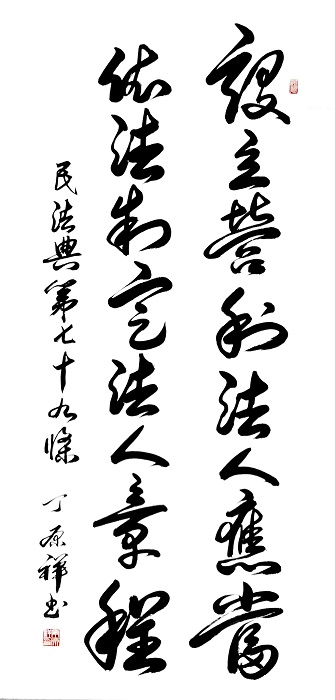 設立營利法人應當
依法制定法人章程
民法典第七十九條 丁原祥书